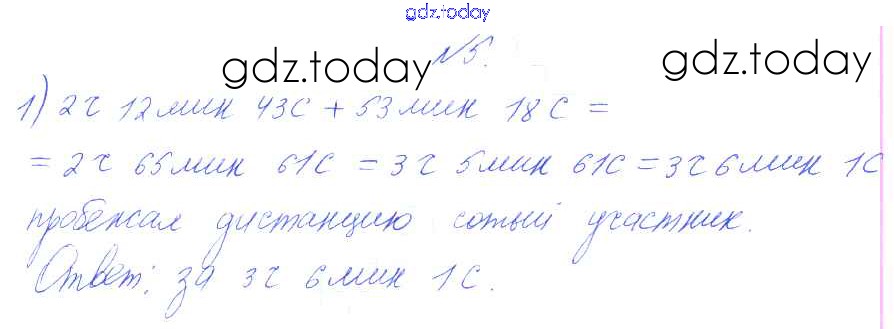 gdz.today
№5.
gdz.today gdz.today
1) 2 ч 12 мин 43 с + 53 мин 18 с =
= 2 ч 65 мин 61 с = 3 ч 5 мин 61 с = 3 ч 6 мин 1 с
пробежал дистанцию сотый участник.
Ответ: за 3 ч 6 мин 1 с.